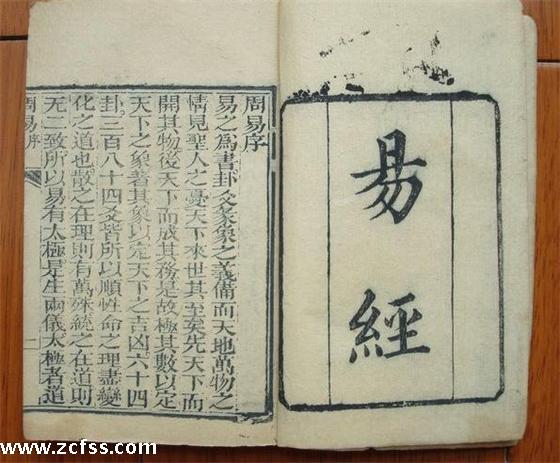 易經
周易序
易之爲書卦爻彖象之義備而天地萬物之
情見聖人之憂天下來世其至矣先天下而
開其物後天下而成其務是故極其數以定
天下之象著其象以定天下之吉凶六十四
卦三百八十四爻皆所以順性命之理盡變
化之道也散之在理則有萬殊統之在道則
无二致所以易有太極是生兩儀太極者道
周易序
一
www.zcfss.com
www.zcfss.com